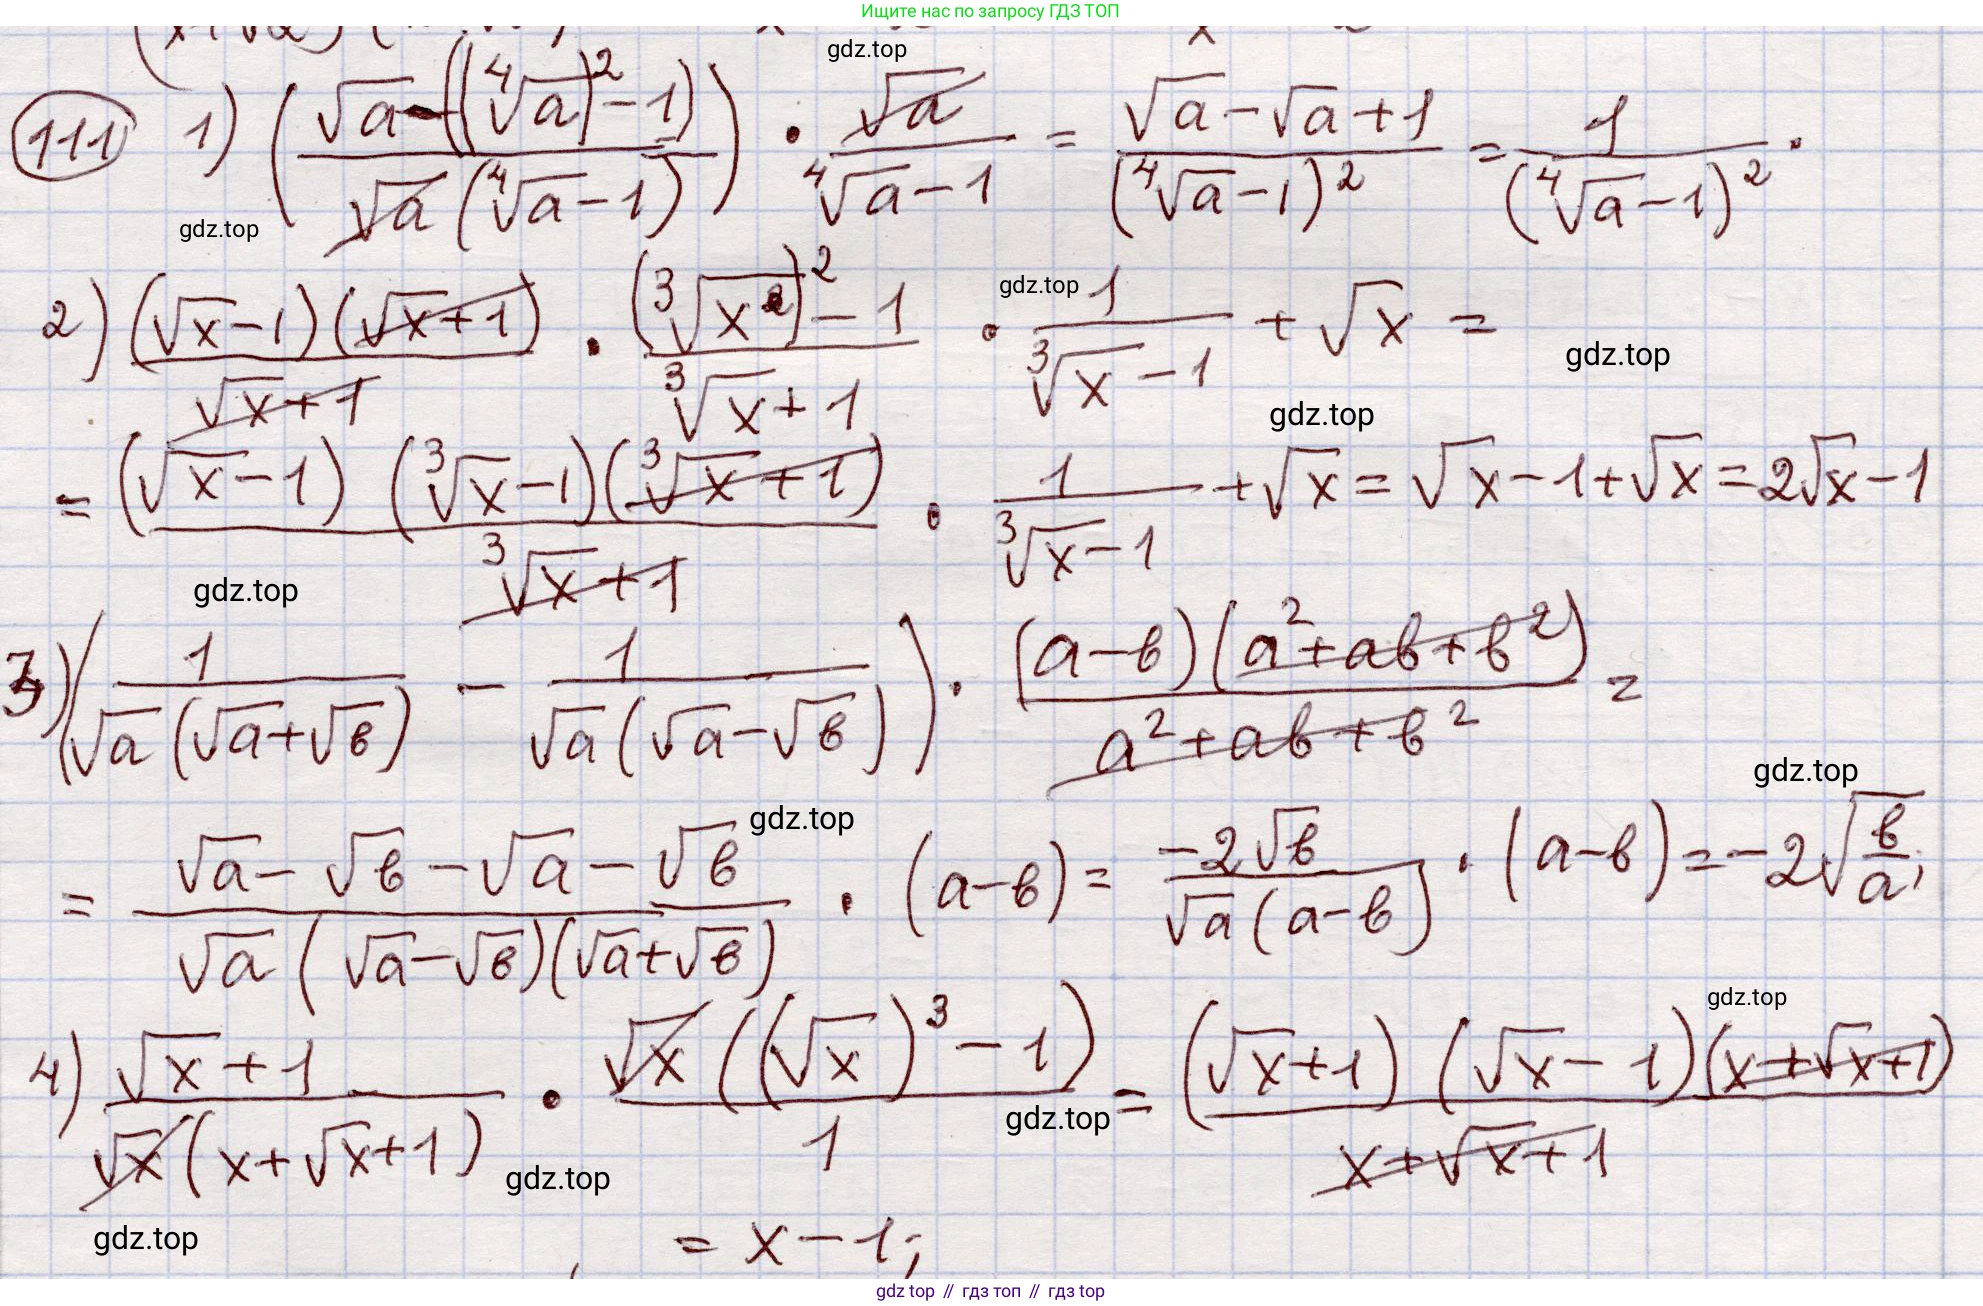 Ищите нас по запросу ГДЗ ТОП
gdz.top
111 1) ((√a-((⁴√a)²-1))/(√a(⁴√a-1))) · √a/(⁴√a-1) = (√a-√a+1)/((⁴√a-1)²) = 1/((⁴√a-1)²) .
gdz.top
2) ((√x-1)(√x+1))/(√x+1) · ((³√x)²-1)/(³√x+1) · 1/(³√x-1) + √x =
gdz.top
gdz.top
gdz.top
= ((√x-1)(³√x-1)(³√x+1))/(³√x+1) · 1/(³√x-1) + √x = √x-1+√x = 2√x-1
gdz.top
3) (1/(√a(√a+√b)) - 1/(√a(√a-√b))) · ((a-b)(a²+ab+b²))/(a²+ab+b²) =
gdz.top
gdz.top
= (√a-√b-√a-√b)/(√a(√a-√b)(√a+√b)) · (a-b) = (-2√b)/(√a(a-b)) · (a-b) = -2√(b/a);
gdz.top
4) (√x+1)/(√x(x+√x+1)) · (√x((√x)³-1))/1 = ((√x+1)(√x-1)(x+√x+1))/(x+√x+1)
gdz.top
gdz.top
gdz.top
= x-1;
gdz top // гдз топ // гдз top